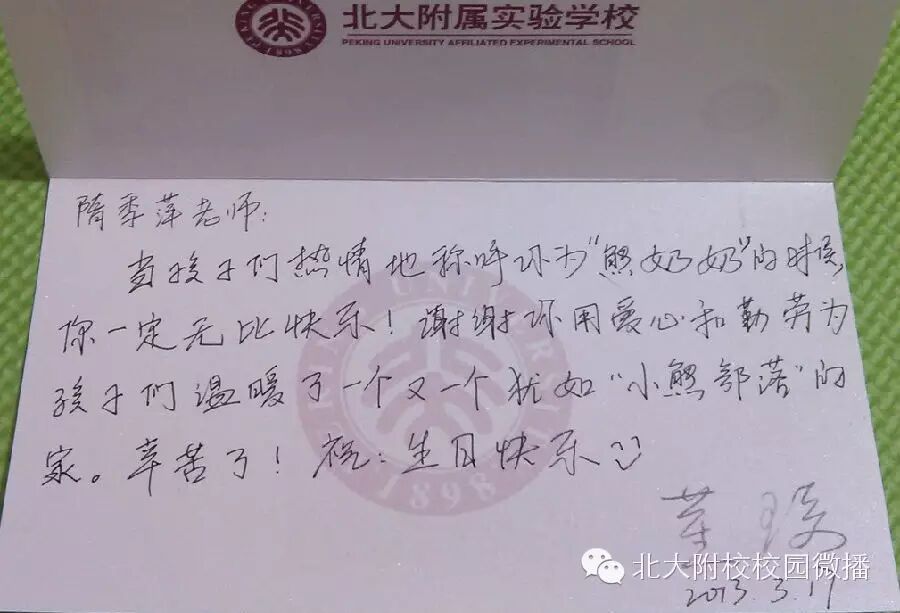 北大附属实验学校
PEKING UNIVERSITY AFFILIATED EXPERIMENTAL SCHOOL
隋季萍老师:
当孩子们热情地称呼你为“熊奶奶”的时候
你一定无比快乐!谢谢你用爱心和勤劳为
孩子们温暖了一个又一个犹如“小熊部落”的
家。辛苦了!祝:生日快乐
1898
北大附校校园微播
2013.3.17